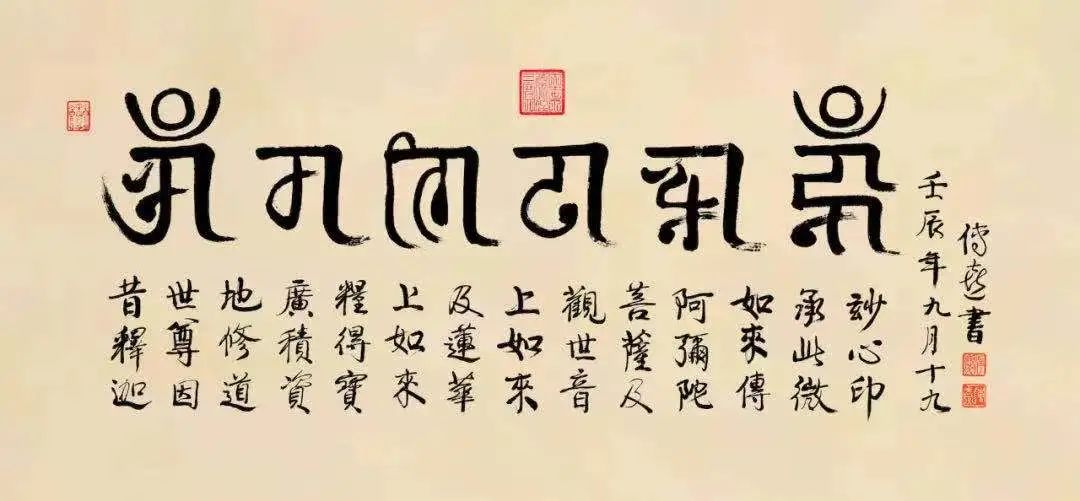 𑖌𑖼 𑖦 𑖜𑖰 𑖢 𑖟𑖿𑖦𑖸 𑖮𑖳𑖼
昔釋迦
世尊因
地修道
廣積資
糧得寶
上如來
及蓮華
上如來
觀世音
菩薩及
阿彌陀
如來傳
承此微
玅心印
壬辰年九月十九
傳喜書